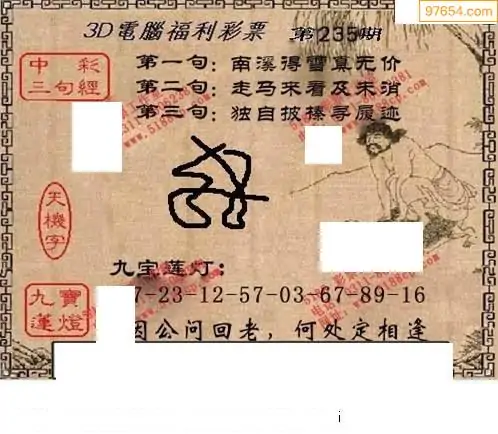 97654.com
3D電腦福利彩票 第235期
中彩
三句經
第一句：南溪得雪真无价
第二句：走马来看及未消
第三句：独自披榛寻履迹
天機字
九宝莲灯：
九寶
蓮燈
7-23-12-57-03-67-89-16
因公问回老，何处定相逢
i